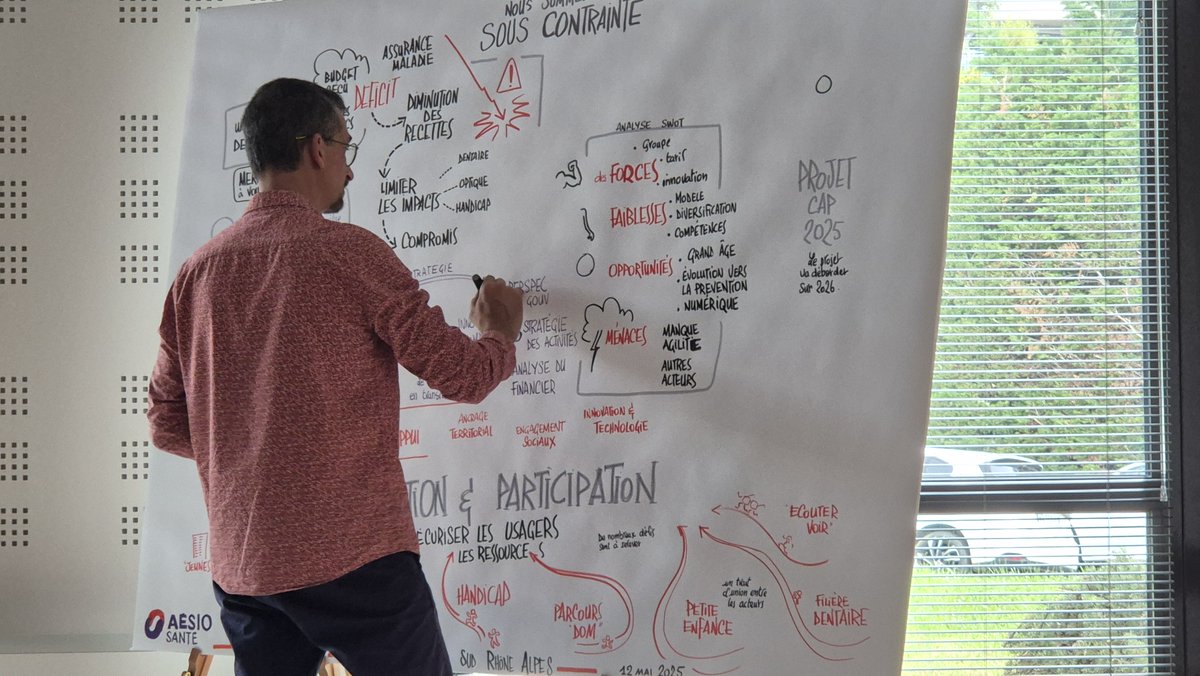 NOUS
SOUS CONTRAINTE
ASSURANCE
MALADIE
BUDGET
DÉFICIT
DIMINUTION
DES
RECETTES
DENTAIRE
LIMITER
LES IMPACTS
OPTIQUE
HANDICAP
COMPROMIS
ANALYSE SWOT
• Groupe
• tarif
des FORCES
• innovation
FAIBLESSES
• MODÈLE
• DIVERSIFICATION
• COMPÉTENCES
OPPORTUNITÉS
• GRAND ÂGE
• ÉVOLUTION VERS
LA PRÉVENTION
• NUMÉRIQUE
MENACES
MANQUE
AGILITÉ
AUTRES
ACTEURS
PROJET
CAP
2025
Le projet
va déborder
sur 2026
STRATÉGIE
PERSPEC
GOUV
STRATÉGIE
DES ACTIVITÉS
ANALYSE DU
FINANCIER
ANCRAGE
TERRITORIAL
ENGAGEMENT
SOCIAUX
INNOVATION &
TECHNOLOGIE
& PARTICIPATION
LES USAGERS
LES RESSOURCES
De nombreux défis
sont à relever
"ECOUTER
VOIR"
HANDICAP
PARCOURS
"DOM"
PETITE
ENFANCE
un trait
d'union entre
les acteurs
FILIÈRE
DENTAIRE
AÉSIO
SANTÉ
SUD RHÔNE ALPES
12 MAI 2025